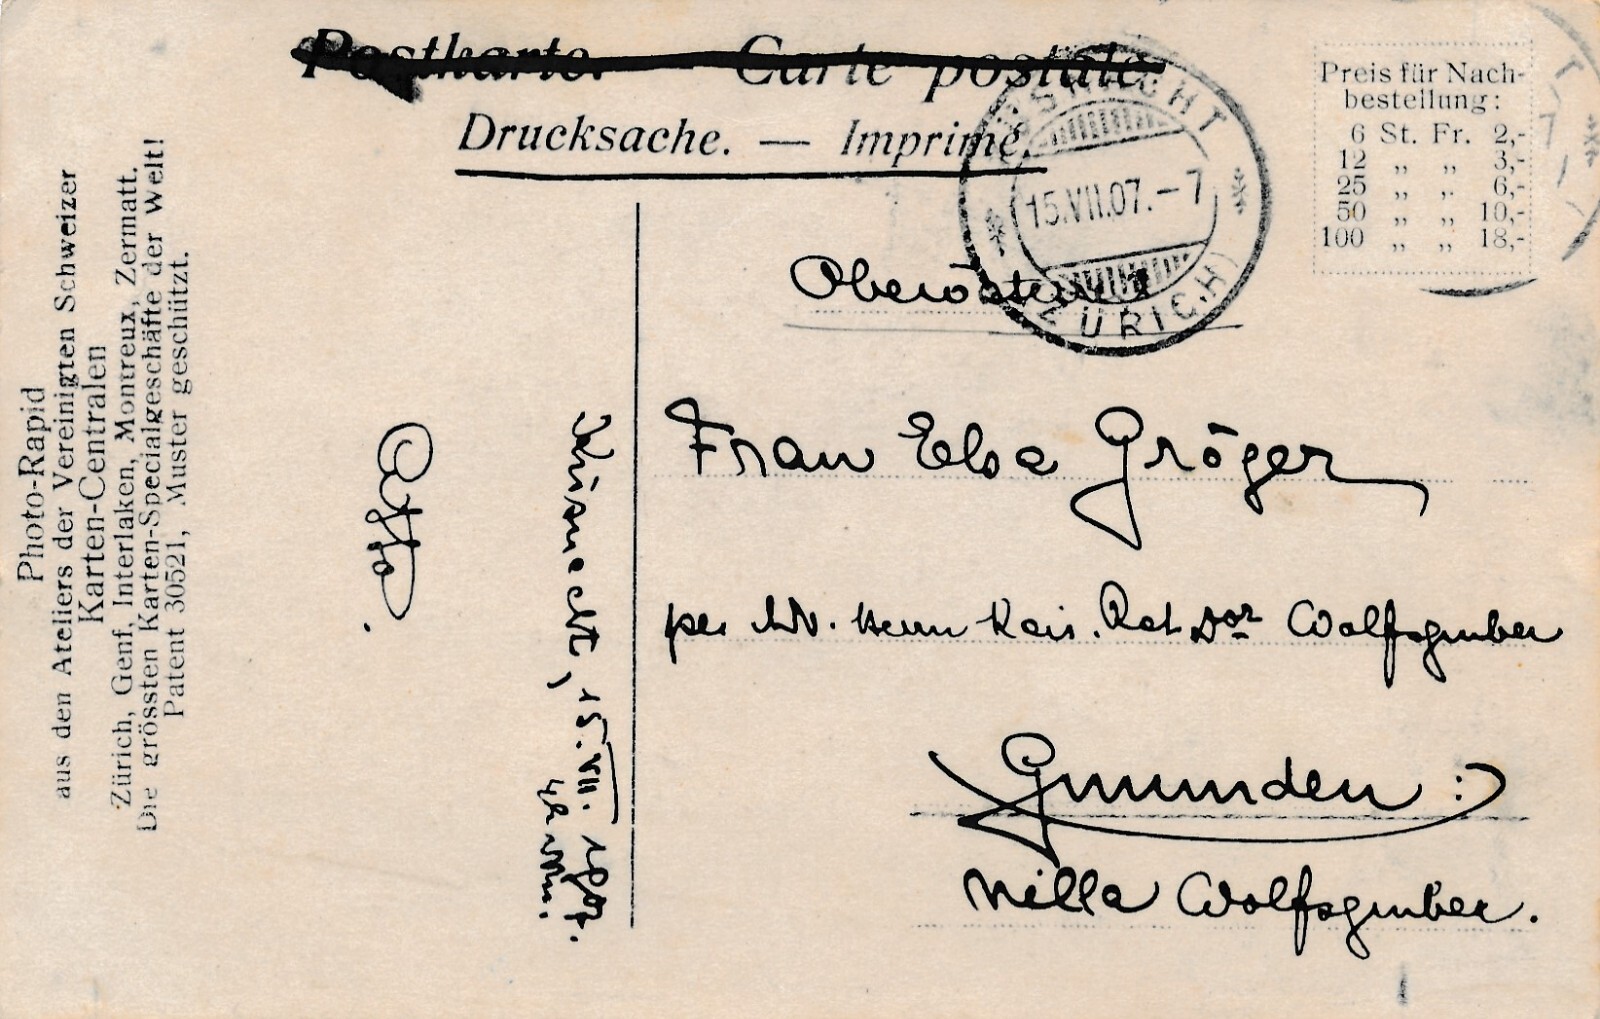 Postkarte. — Carte postale.
Drucksache. — Imprimé.
KÜSNACHT
15.VII.07.-7
(ZÜRICH)
Preis für Nach-
bestellung:
6 St. Fr. 2,-
12 „ „ 3,-
25 „ „ 6,-
50 „ „ 10,-
100 „ „ 18,-
Oberösterreich
Frau Elsa Gröger
per Herrn Kais. Rat Dor Wolfsgruber
Gmunden :)
Villa Wolfsgruber.
Küsnacht, 15. VII. 1907.
Otto.
Photo-Rapid
aus den Ateliers der Vereinigten Schweizer
Karten-Centralen
Zürich, Genf, Interlaken, Montreux, Zermatt.
Die grössten Karten-Specialgeschäfte der Welt!
Patent 30521, Muster geschützt.